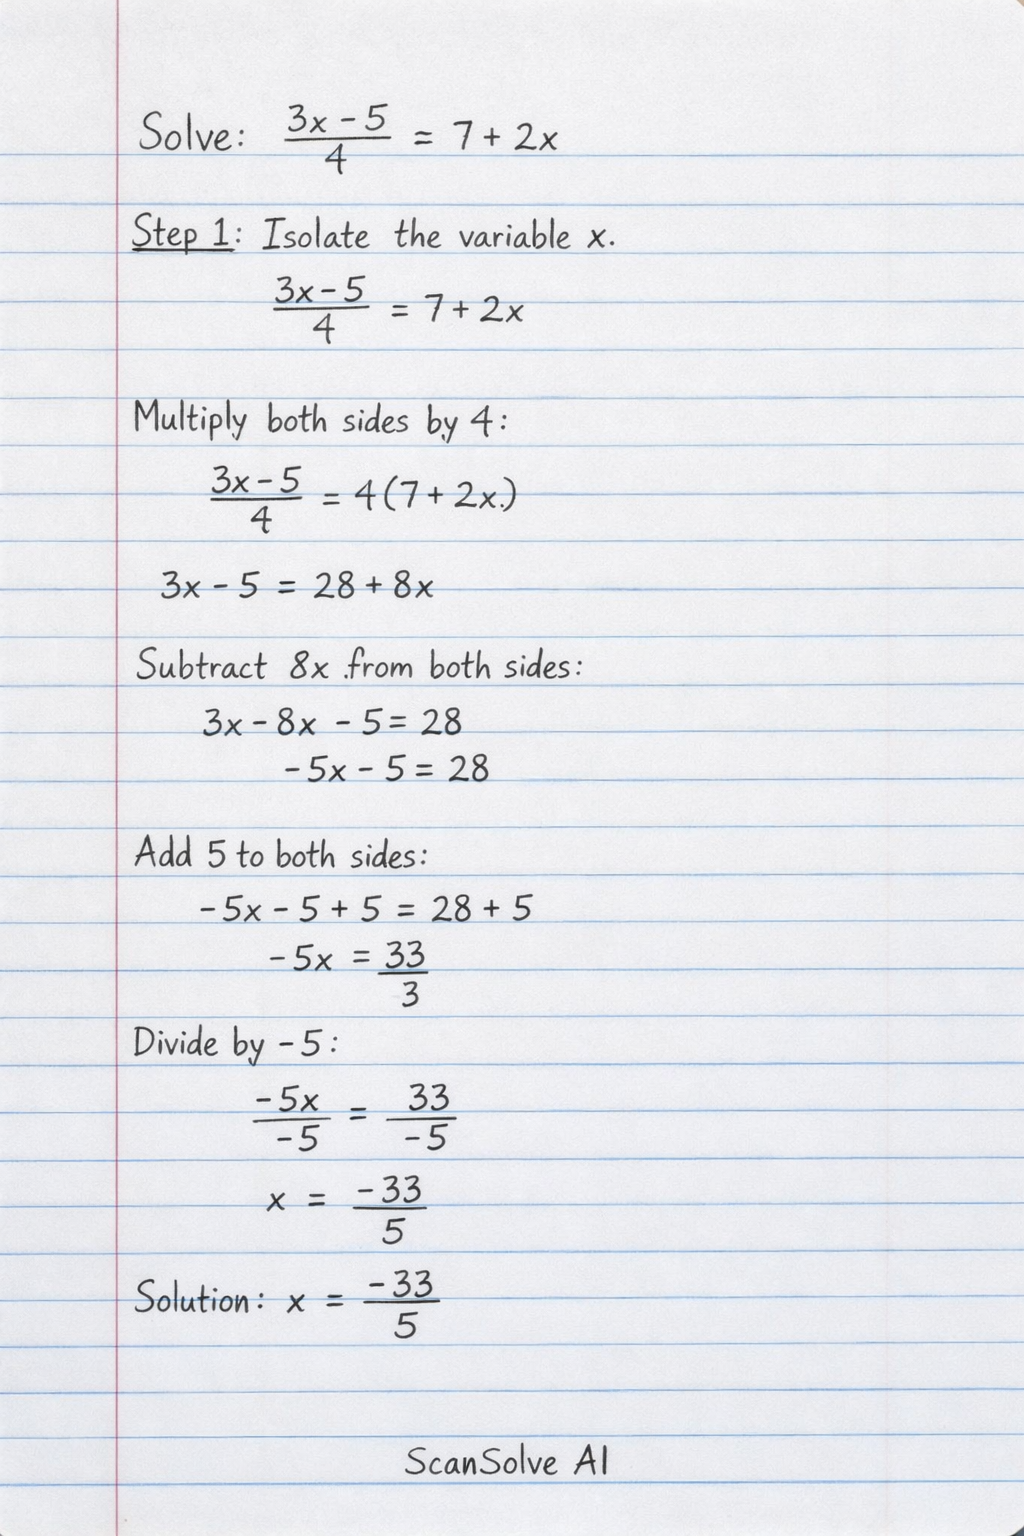 Solve: (3x - 5)/4 = 7 + 2x
Step 1: Isolate the variable x.
(3x - 5)/4 = 7 + 2x
Multiply both sides by 4:
(3x - 5)/4 = 4(7 + 2x.)
3x - 5 = 28 + 8x
Subtract 8x .from both sides:
3x - 8x - 5 = 28
-5x - 5 = 28
Add 5 to both sides:
-5x - 5 + 5 = 28 + 5
-5x = 33/3
Divide by -5:
-5x/-5 = 33/-5
x = -33/5
Solution: x = -33/5
ScanSolve AI